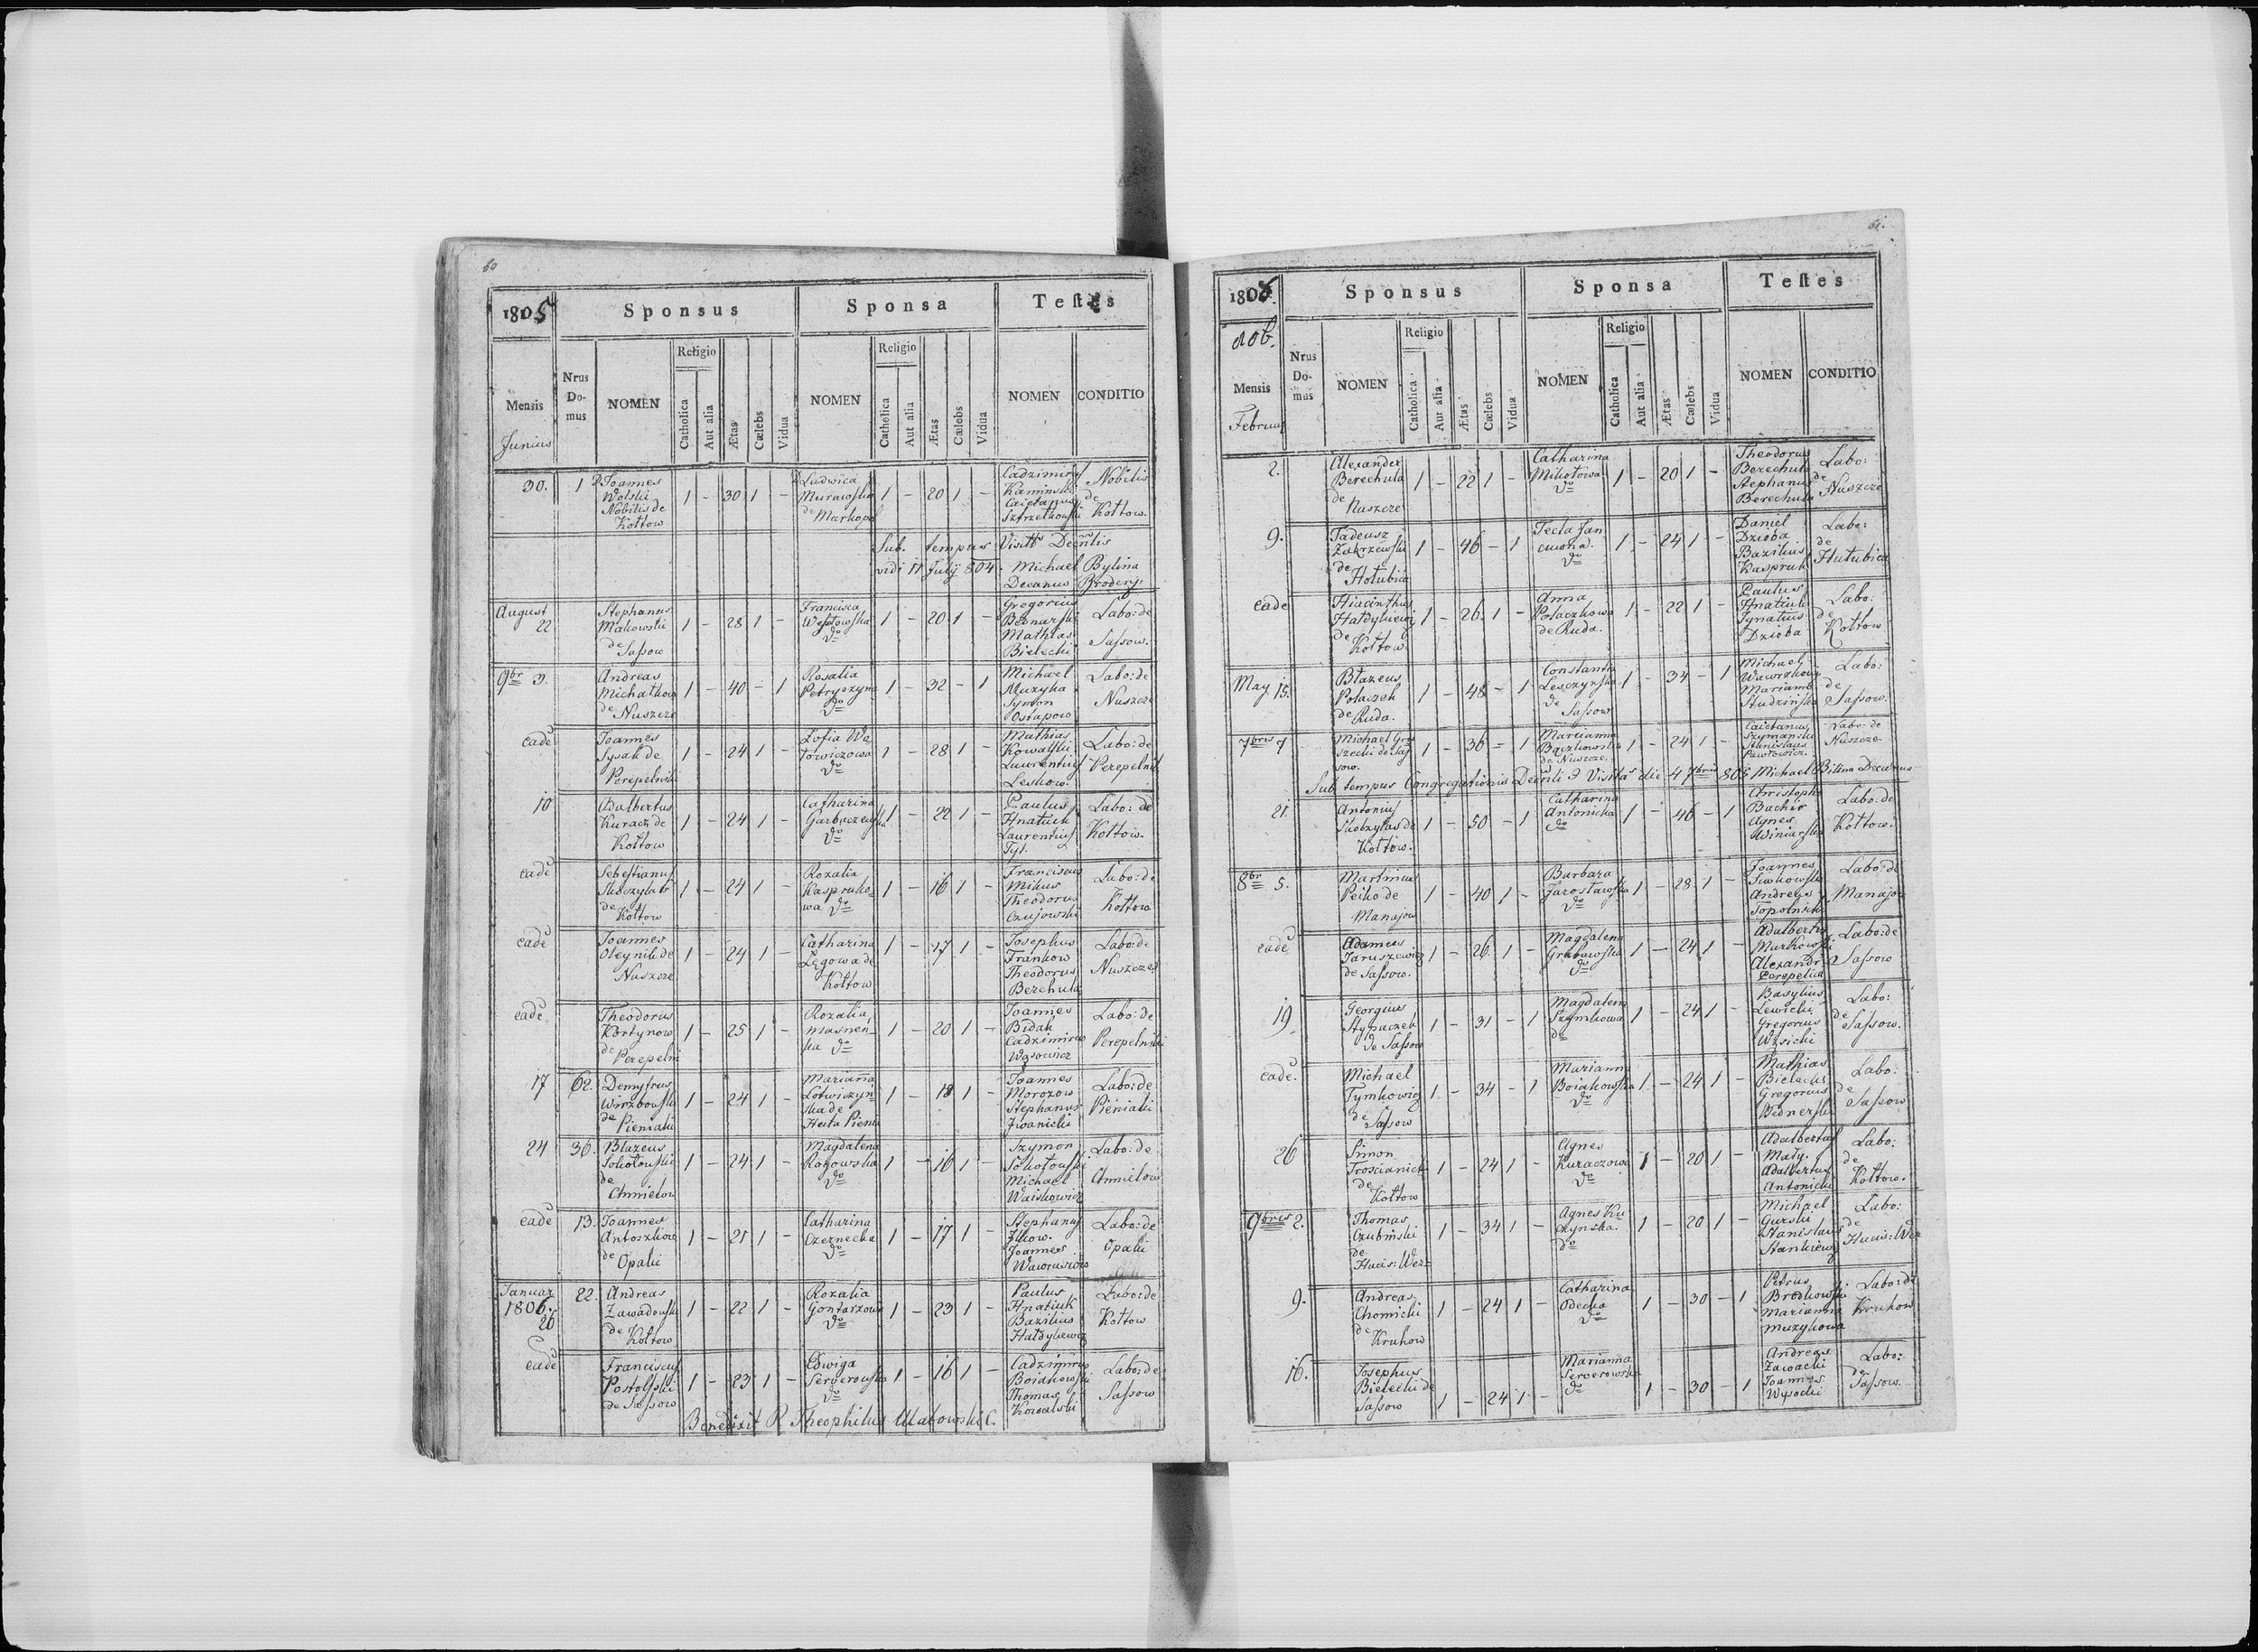 60
1805
Sponsus
Sponsa
Testes
Mensis
Nrus Do-mus
NOMEN
Religio
Catholica
Aut alia
Ætas
Cælebs
Vidua
NOMEN
Religio
Catholica
Aut alia
Ætas
Cælebs
Vidua
NOMEN
CONDITIO
Junius
30. 1 Joannes Wolski Nobilis de Kołtow 1 – 30 1 – Ludwica Murawska de Markopol 1 – 20 1 – Cadzimirus Kaminski Caietanus Nobilis de Kołtow.
Sub. tempus Visitts Decñlis
vidi 11 July 804. Michael Bylina
Decanus Brodens.
August 22 Stephanus Makowski de Sassow 1 – 28 1 – Francisca Wesołowska do 1 – 20 1 – Gregorius Bednarski Mathias Bielecki Labo: de Sassow.
9br 3. Andreas Michałkow de Nuszcze 1 – 40 – 1 Rosalia Petryszyna do 1 – 32 – 1 Michael Muzyka Symon Ostapow Labo: de Nuszcze
eade Joannes Sysak de Perepelniki 1 – 24 1 – Zofia Wa towiczowa do 1 – 28 1 – Mathias Kowalski Laurentius Leskow. Labo: de Perepelnik
10 Adalbertus Kuracz de Kołtow 1 – 24 1 – Catharina Garbaczewska do 1 – 22 1 – Paulus Hnatiuk Laurentius Tyl. Labo: de Kołtow.
eade Sebestianus Skoczylas de Kołtow 1 – 24 1 – Rozalia Kaspruko wa do 1 – 16 1 – Franciscus Mikus Theodorus Czujowski Labo: de Kołtow
eade Joannes Oleynik de Nuszcze 1 – 24 1 – Catharina Łęgowa de Kołtow 1 – 17 1 – Josephus Frankow Theodorus Berehula Labo: de Nuszcze
eade Theodorus Kortynow de Perepelni 1 – 25 1 – Rozalia ka do 1 – 20 1 – Joannes Bidak Cadzimirus Wąsowicz Labo: de Perepelniki
17 62. Demytrus Wirzbowski de Pieniaki 1 – 24 1 – Marianna Łotwiczyn ska de Huta Pienia 1 – 18 1 – Joannes Morozow Stephanus Iwanicki Labo: de Pieniaki
24 36. Blazeus Sokołowski de Chmielow 1 – 24 1 – Magdalena Rokowska do 1 – 16 1 – Szymon Sokołowski Michael Waiskowicz Labo: de Chmielow
eade 13. Joannes Antoszkow de Opaki 1 – 21 1 – Catharina Czernecka do 1 – 17 1 – Stephanus Ilkow. Joannes Labo: de Opaki
Januar 1806. 26 22. Andreas Zawadowski de Kołtow 1 – 22 1 – Rozalia Gontarzowa do 1 – 23 1 – Paulus Hnatiuk Bazilius Hałdykewicz Labo: de Kołtow
eade Franciscus Postolski de Sassow 1 – 23 1 – Edwiga Serverowska do 1 – 16 1 – Cadzimirus Boiakowski Thomas Kowalski Labo: de Sassow
Benedixit R Theophilus Makowski C.
61.
1806.
Sponsus
Sponsa
Testes
806.
Mensis
Nrus Do-mus
NOMEN
Religio
Catholica
Aut alia
Ætas
Cælebs
Vidua
NOMEN
Religio
Catholica
Aut alia
Ætas
Cælebs
Vidua
NOMEN
CONDITIO
Februar
2. Alexander Berechula de Nuszcze 1 – 22 1 – Catharina Mikołowa do 1 – 20 1 – Theodorus Berechula Stephanus Berechula Labo: de Nuszcze
9. Tadeusz Zakrzewski de Hołubica 1 – 46 – 1 Tecla Jan cuwna. do 1 – 24 1 – Daniel Dzioba Bazilius Kaspruk Labo: de Hutubica
eade Hiacinthus Hałdykiewicz de Kołtow 1 – 26 1 – Anna Polaczkowa de Ruda. 1 – 22 1 – Paulus Hnatiuk Ignatius Dzioba Labo: de Kołtow
May 15. Błazeus Polaczek de Ruda. 1 – 48 – 1 Constantia Leszczynska de Sassow 1 – 34 – 1 Michael Marianna Studzińska Labo: de Sassow.
7bris 7 Michael Gry szecki de Sas sow. 1 – 36 – 1 Marcianna Bączkowska de Nuszcze. 1 – 24 1 – Caietanus Szymanski Stanislaus Pawłowicz. Labo: de Nuszcze
Sub tempus Congregationis Decñli & Visitas die 4 7bris 806 Michael Bilina Decanus
21. Antonius Skoczylas de Kołtow. 1 – 50 – 1 Catharina Antonicka do 1 – 46 – 1 Christoph Bachir Agnes Winiarska Labo: de Kołtow.
8br 5. Martinus Peiko de Manajow 1 – 40 1 – Barbara Jarosławska do 1 – 28 1 – Joannes Andreas Topolnicki Labo: de Manajow
eade Adamus Jaruszewicz de Sassow. 1 – 26 1 – Magdalena Grabowska do 1 – 24 1 – Adalbertus Markowski Alexandr Perepelica Labo: de Sassow
19 Georgius Stynaczek de Sassow 1 – 31 – 1 Magdalena Szymkowa do 1 – 24 1 – Basylius Lewicki Gregorius Wysicki Labo: de Sassow.
eade. Michael Tymkowicz de Sassow 1 – 34 – 1 Marianna Boiakowska do 1 – 24 1 – Mathias Bielecki Gregorius Bednerski Labo: de Sassow
26 Simon Troscianicki de Kołtow 1 – 24 1 – Agnes Kuraczowa do 1 – 20 1 – Adalbertus Mały. Adalbertus Antonicki Labo: de Kołtow.
9bris 2. Thomas Czubinski de Hucis: Wer: 1 – 34 1 – Agnes Ku czynska. do 1 – 20 1 – Michael Gurski Stanislaus Stankiewicz Labo: de Hucis: Wer
9. Andreas Chomicki de Kruhow 1 – 24 1 – Catharina Decka do 1 – 30 – 1 Petrus Brodkowski Marianna Muzykowa Labo: de Kruhow
16. Josephus Bielecki de Sassow 1 – 24 1 – Marianna Serverowska do 1 – 30 – 1 Andreas Zawacki Joannes Wysocki Labo: de Sassow